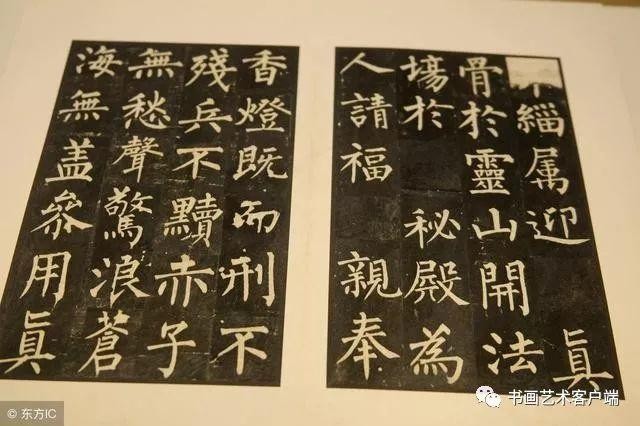 緇属迎 真
骨於靈山開法
場於 秘殿為
人請福 親奉
香燈既而刑不
殘兵不黷赤子
無愁聲驚浪蒼
海無盖叅用真
书画艺术客户端
© 东方IC